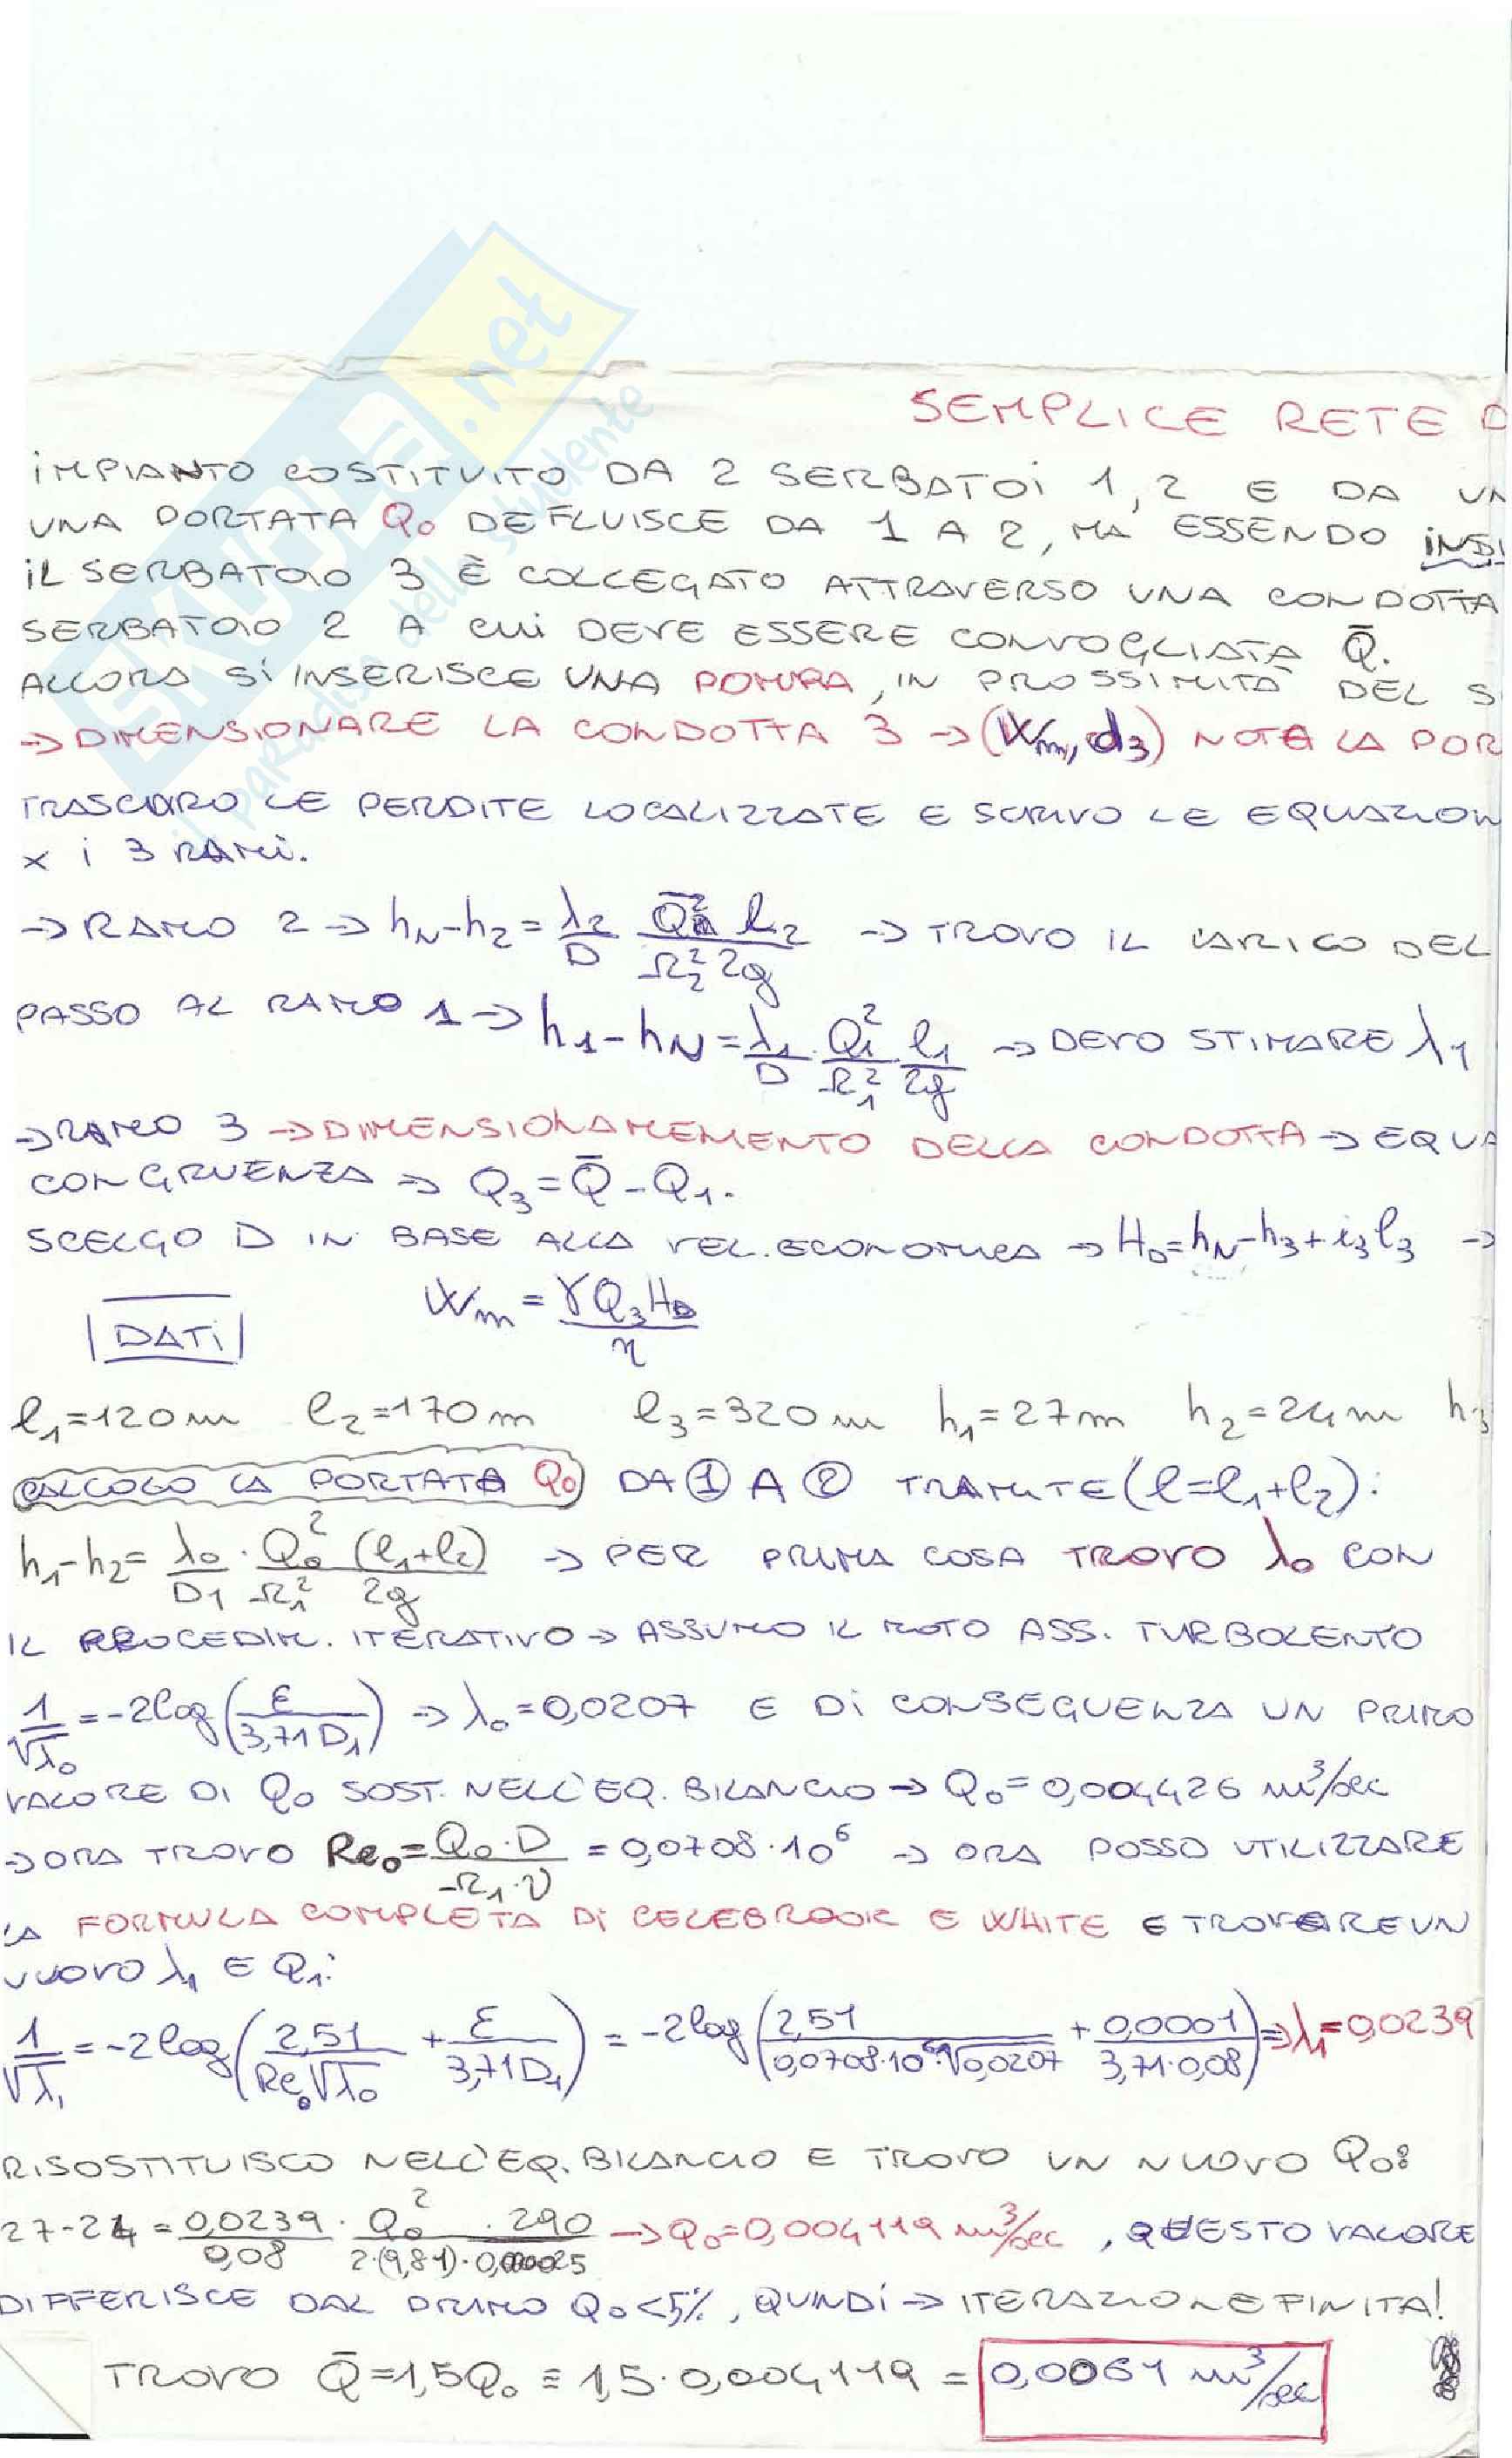 SKUOLA.net
il paradiso dello studente
SEMPLICE RETE D
IMPIANTO COSTITUITO DA 2 SERBATOI 1,2 E DA UN
UNA PORTATA Q₀ DEFLUISCE DA 1 A 2, MA ESSENDO INSU
IL SERBATOIO 3 È COLLEGATO ATTRAVERSO UNA CONDOTTA
SERBATOIO 2 A CUI DEVE ESSERE CONVOGLIATA Q̄.
ALLORA SI INSERISCE UNA POMPA, IN PROSSIMITÀ DEL S
→ DIMENSIONARE LA CONDOTTA 3 → (Wm, d₃) NOTA LA POR
TRASCURO LE PERDITE LOCALIZZATE E SCRIVO LE EQUAZION
x i 3 RAMI.
→ RAMO 2 → hN-h₂ = λ₂/D · Q̄²/Ω₂² · l₂/2g → TROVO IL CARICO DEL
PASSO AL RAMO 1 → h₁-hN = λ₁/D · Q₁²/Ω₁² · l₁/2g → DEVO STIMARE λ₁
→ RAMO 3 → DIMENSIONAMEMENTO DELLA CONDOTTA → EQUA
CONGRUENZA → Q₃ = Q̄ - Q₁.
SCELGO D IN BASE ALLA VEL. ECONOMICA → H₀ = hN-h₃+i₃l₃ →
Wm = γQ₃H₀/η
DATI
l₁=120m l₂=170m l₃=320m h₁=27m h₂=24m h₃
CALCOLO LA PORTATA Q₀ DA ① A ② TRAMITE (l=l₁+l₂):
h₁-h₂ = λ₀/D₁ · Q₀²/Ω₁² · (l₁+l₂)/2g → PER PRIMA COSA TROVO λ₀ CON
IL PROCEDIM. ITERATIVO → ASSUMO IL MOTO ASS. TURBOLENTO
1/√λ₀ = -2log(ε/3,71D₁) → λ₀=0,0207 E DI CONSEGUENZA UN PRIMO
VALORE DI Q₀ SOST. NELL'EQ. BILANCIO → Q₀=0,004426 m³/sec
→ ORA TROVO Re₀ = Q₀·D/Ω₁·ν = 0,0708·10⁶ → ORA POSSO UTILIZZARE
LA FORMULA COMPLETA DI CELEBROOK E WHITE E TROVARE UN
NUOVO λ₁ E Q₁:
1/√λ₁ = -2log(2,51/Re₀√λ₀ + ε/3,71D₁) = -2log(2,51/0,0708·10⁶·√0,0207 + 0,0001/3,71·0,08) ⇒ λ₁=0,0239
RISOSTITUISCO NELL'EQ. BILANCIO E TROVO UN NUOVO Q₀:
27-24 = 0,0239/0,08 · Q₀²·290/2·(9,81)·0,000025 → Q₀=0,004119 m³/sec, QUESTO VALORE
DIFFERISCE DAL PRIMO Q₀<5%, QUINDI → ITERAZIONE FINITA!
TROVO Q̄=1,5Q₀ = 1,5·0,004119 = 0,0061 m³/sec